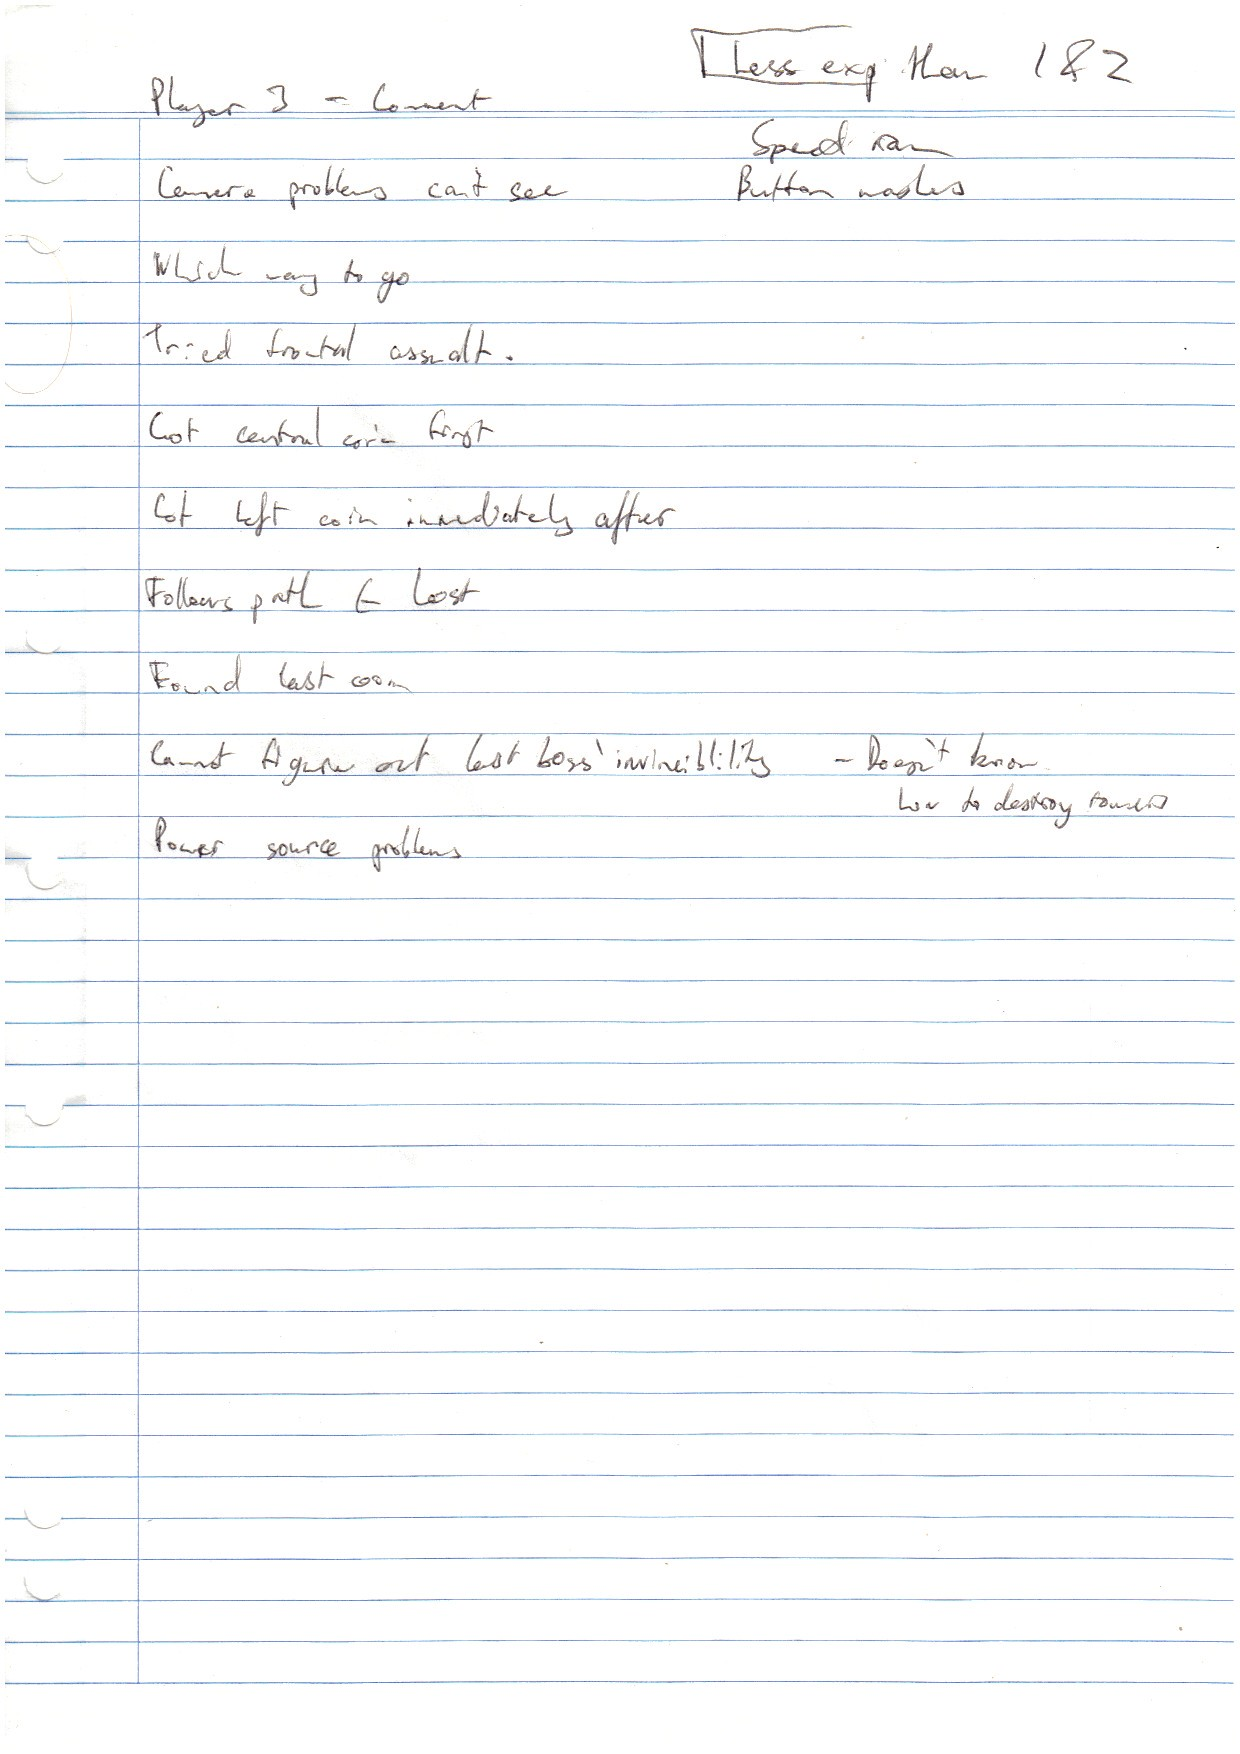 Less exp than 1 & 2
Player 3 - Comment
Speed ran
Camera problems can't see
Button mashes
Which way to go
Tried frontal assualt.
Got central coin first
Got left coin immediately after
Follows path ← Lost
Found last coin
Cannot figure out last boss' invinciblility - Doesn't know
how to destroy towers
Power source problems